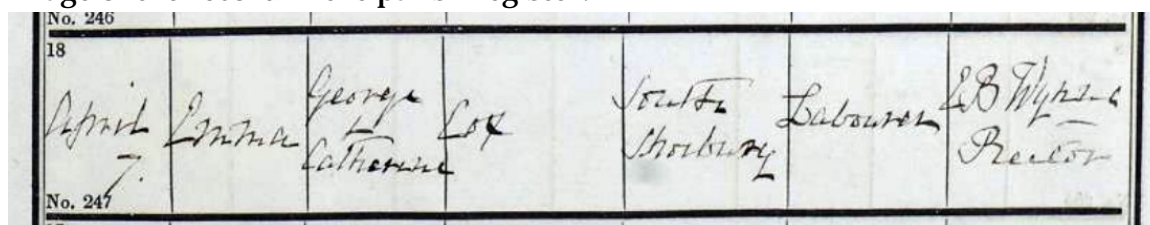 No. 246
18
April
7.
Emma
George
&
Catherine
Cox
South
Shoebury
Labourer
Rector
No. 247